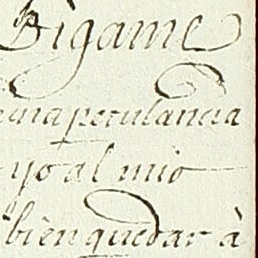 Digame
una petulancia
yo al mio
bien quedar à